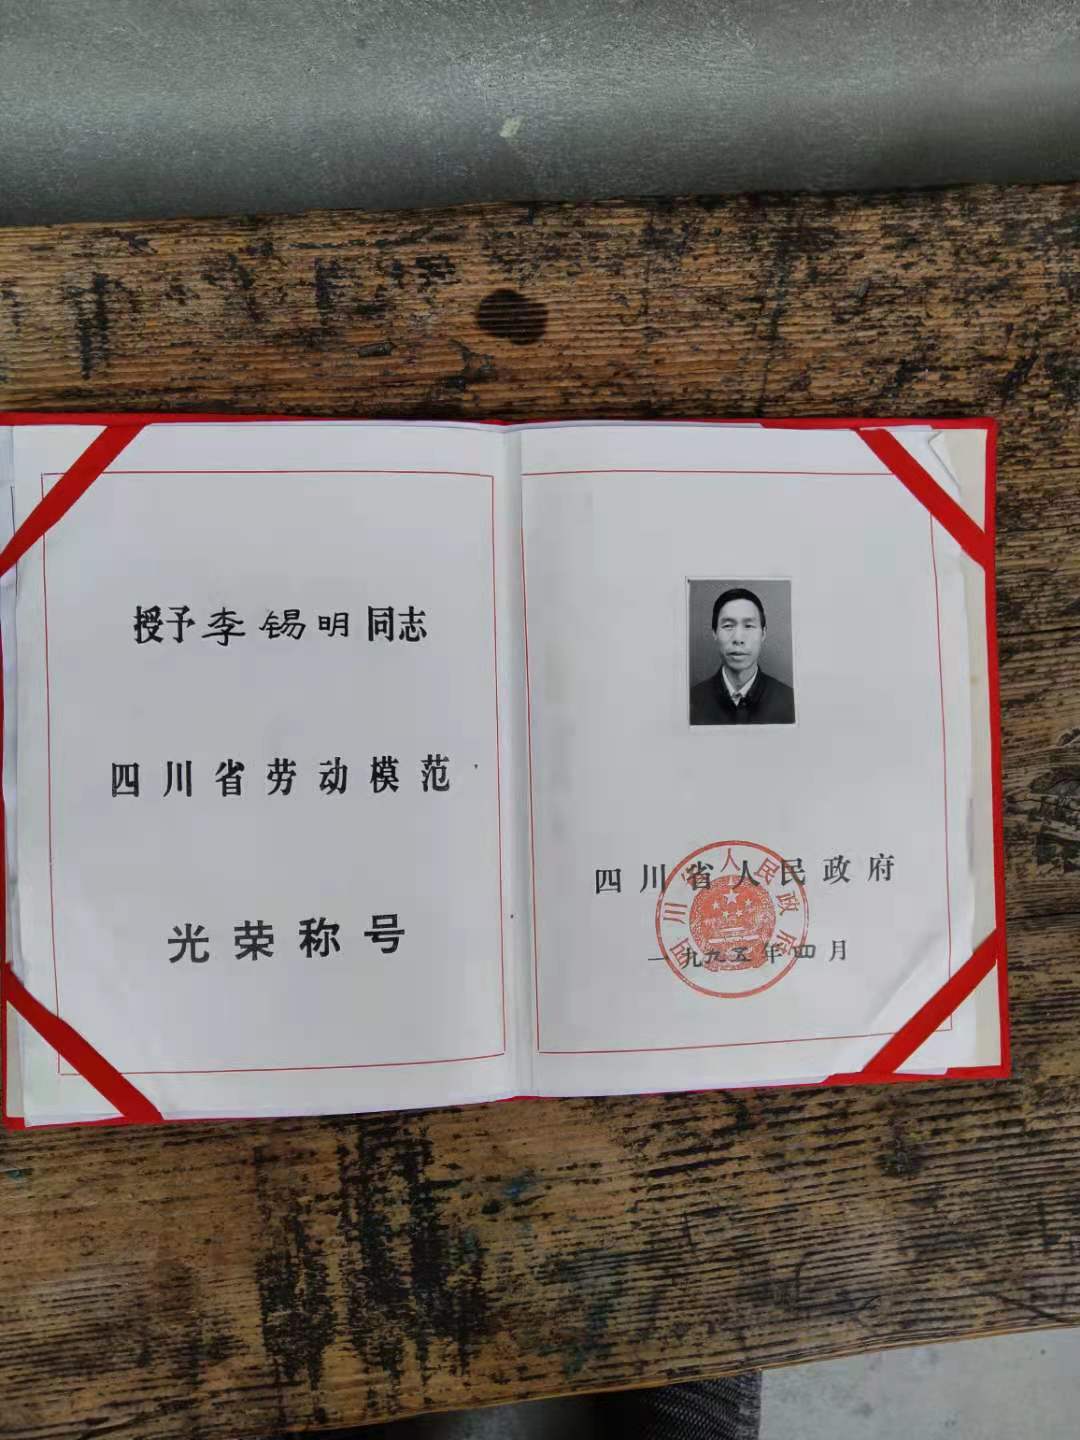 授予李锡明同志
四川省劳动模范
光荣称号
四川省人民政府
一九九五年四月
四川省人民政府